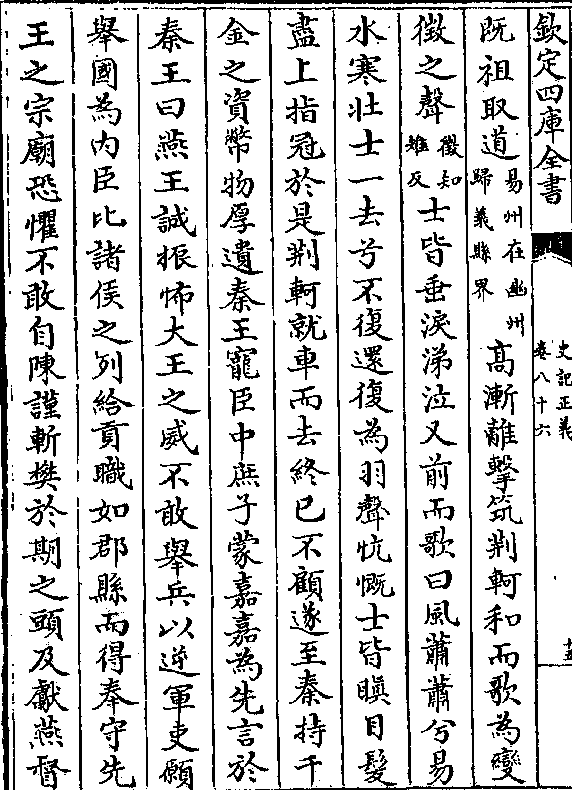 欽定四庫全書
史記正義
卷八十六
十五
既祖取道易州在幽州歸義縣界高漸離擊筑荆軻和而歌為變
徵之聲徵知雉反士皆垂淚涕泣又前而歌曰風蕭蕭兮易
水寒壯士一去兮不復還復為羽聲忼慨士皆瞋目髮
盡上指冠於是荆軻就車而去終已不顧遂至秦持千
金之資幣物厚遺秦王寵臣中庶子蒙嘉嘉為先言於
秦王曰燕王誠振怖大王之威不敢舉兵以逆軍吏願
舉國為内臣比諸侯之列給貢職如郡縣而得奉守先
王之宗廟恐懼不敢自陳謹斬樊於期之頭及獻燕督